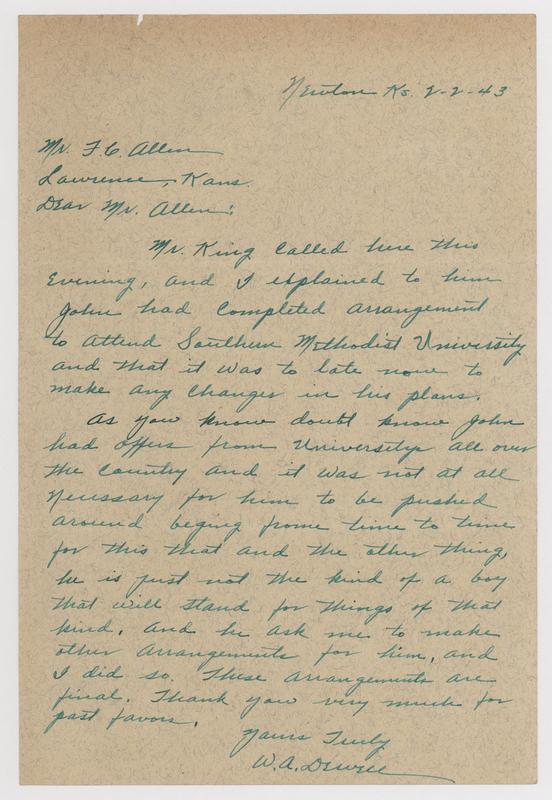 Newton Ks. 2-2-43
Mr. F. C. Allen
Lawrence, Kans.
Dear Mr. Allen:
Mr. King called here this
Evening, and I explained to him
John had completed arrangement
to attend Southern Methodist University
and that it was to late now to
make any changes in his plans.
As you know doubt know John
had offers from Universitys all over
the country and it was not at all
necessary for him to be pushed
around beging frome time to time
for this that and the other thing,
he is just not the kind of a boy
that will stand for things of that
kind, and he ask me to make
other arrangements for him, and
I did so. These arrangements are
final. Thank you very much for
past favors.
Yours Truly
W. A. Dewell